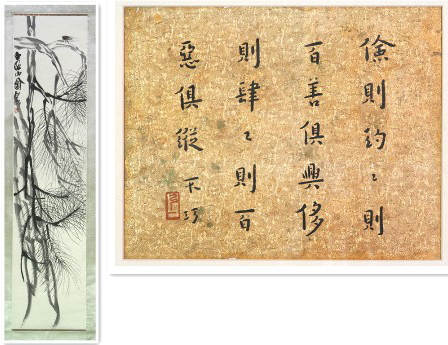 儉則約〻則
百善俱興侈
則肆〻則百
惡俱縱